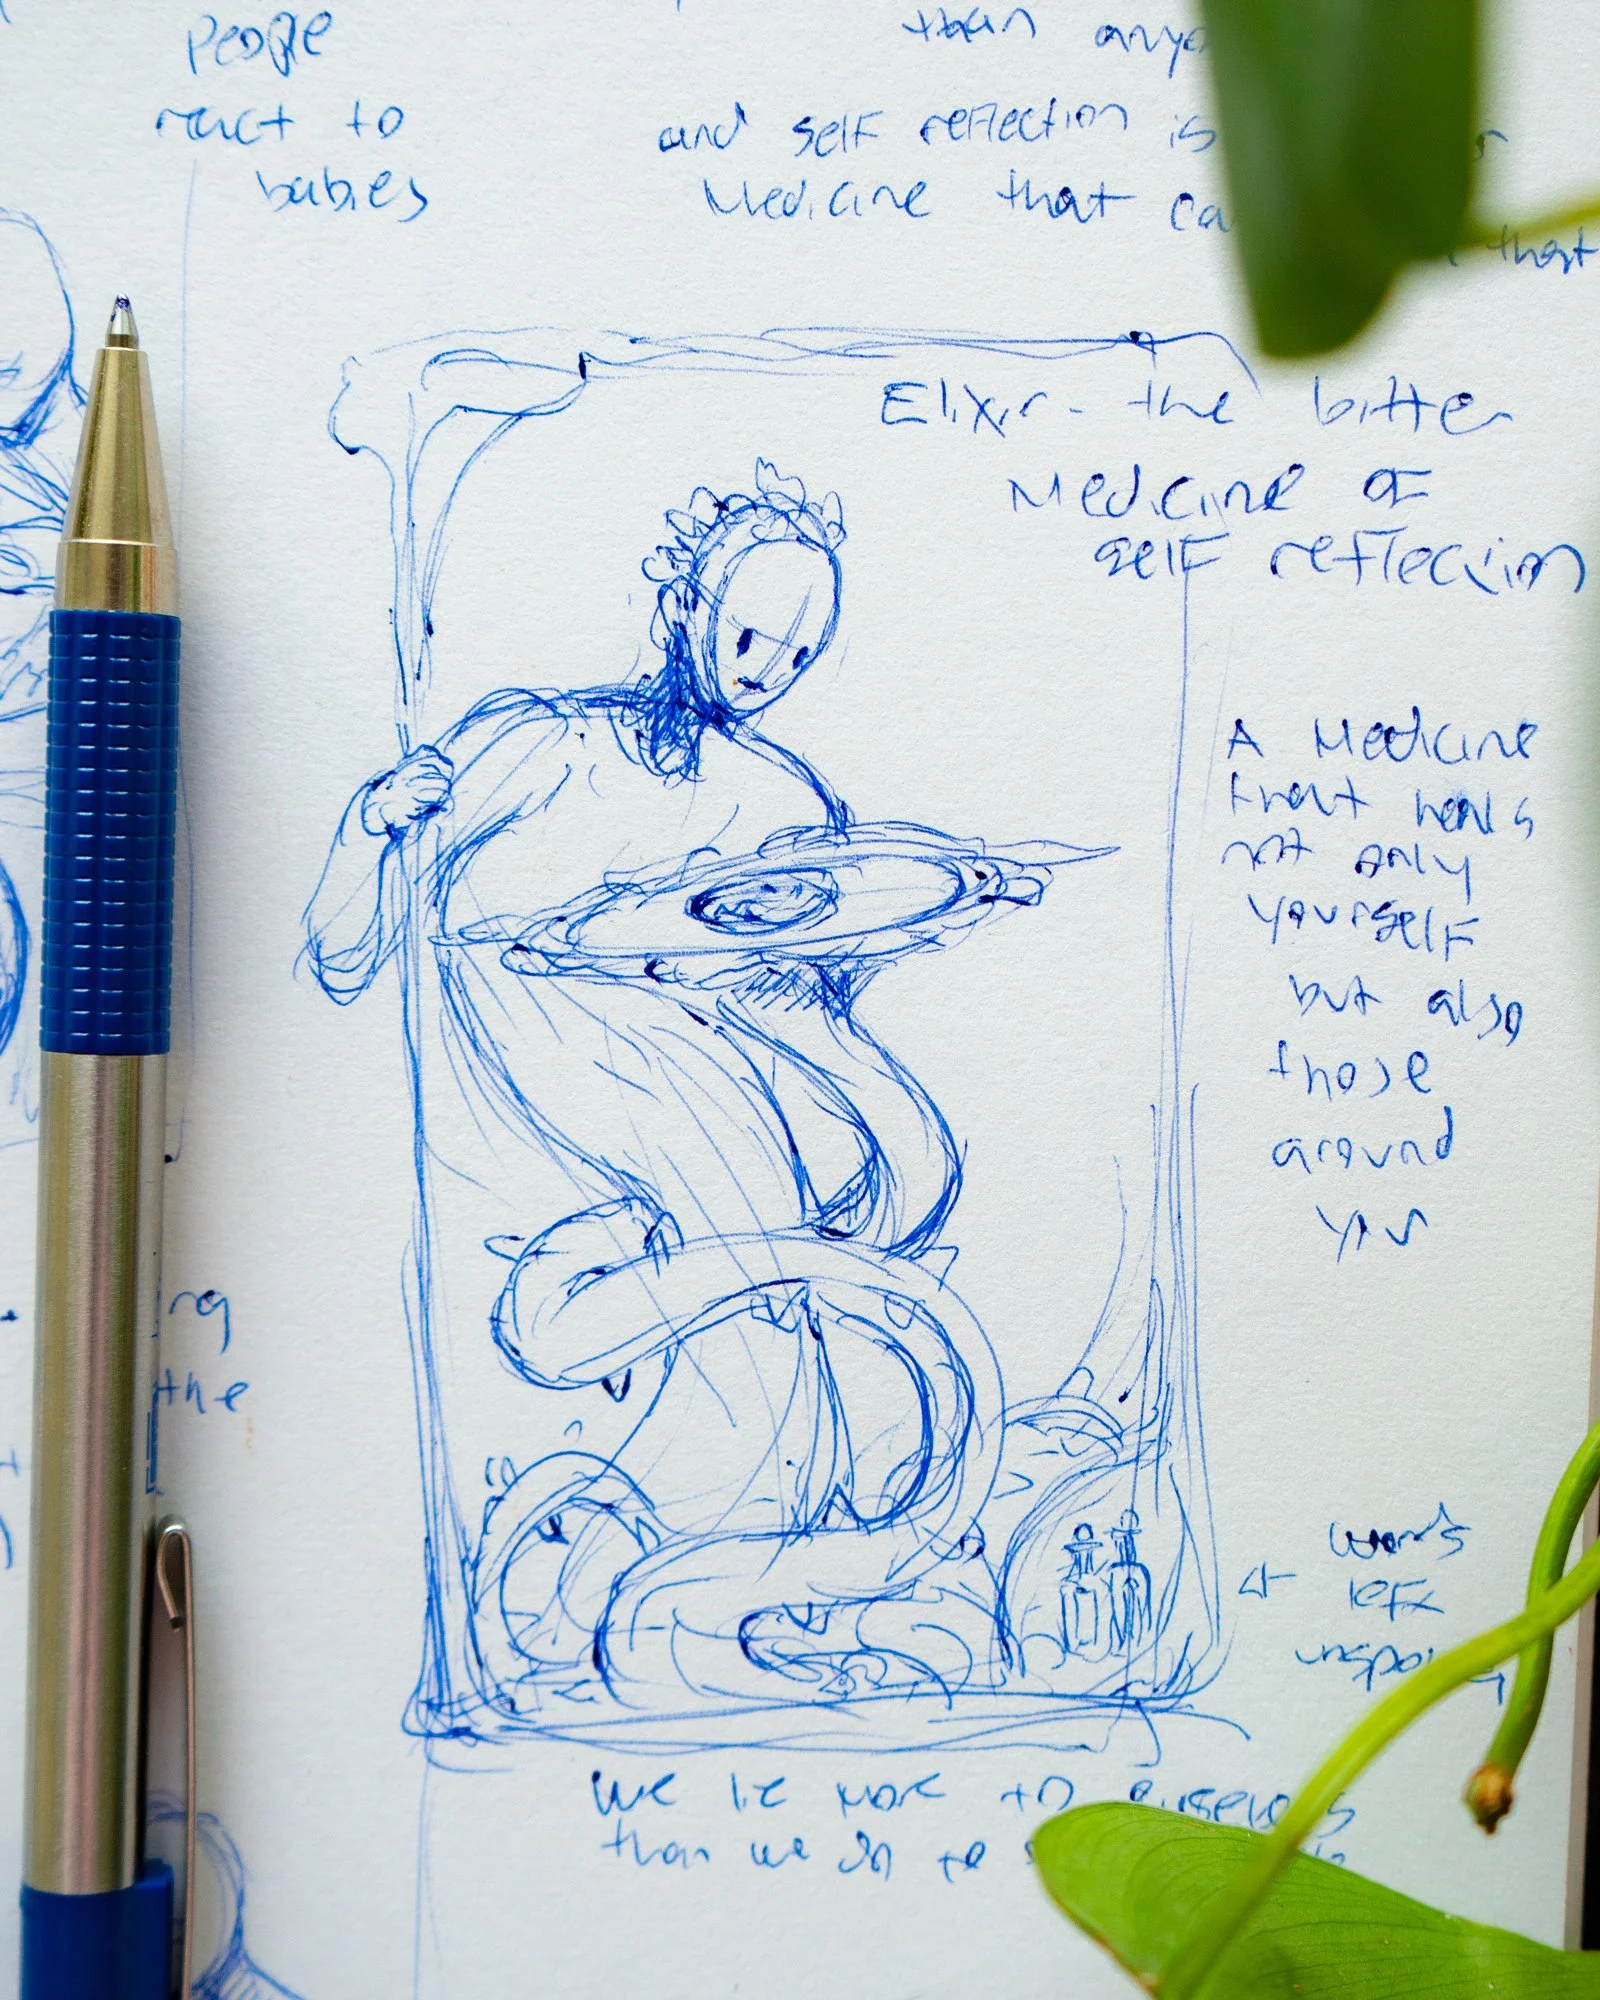 People
react to
babies
than
and self reflection is
Medicine that
that
Elixir - the bitter
Medicine of
self reflection
A Medicine
that heals
not only
yourself
but also
those
around
you
the
words
left
We lie more to ourselves
than we do to